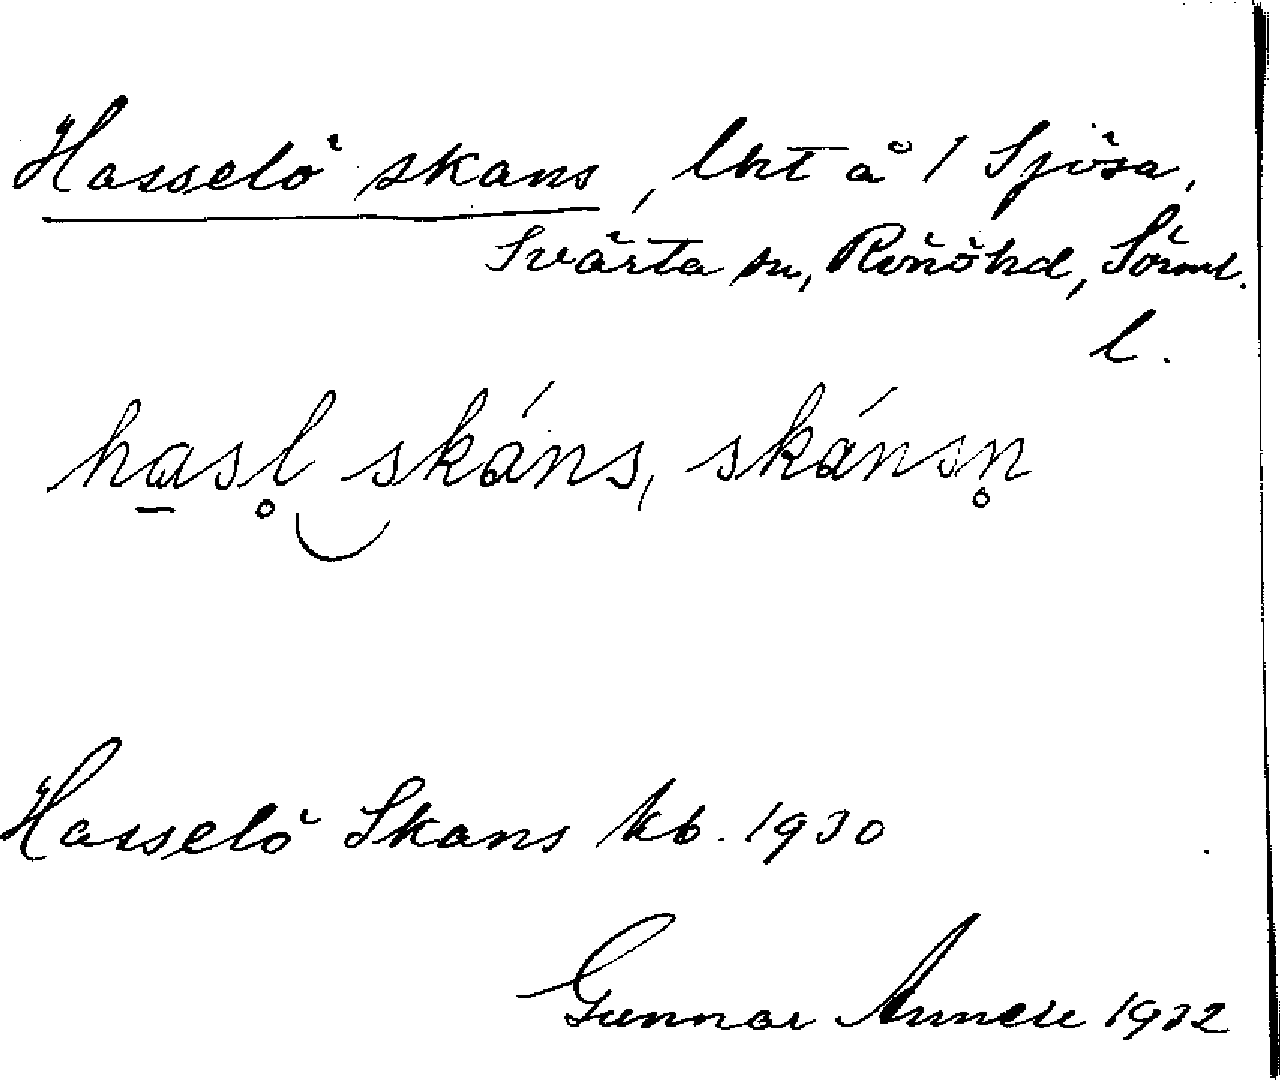 Hasselö skans, lht å 1 Sjösa,
Svärta sn, Rönöhd, Sörml.
l.
hasl̥ skáns, skánsn̥
Hasselö Skans kb. 1930
Gunnar 1932